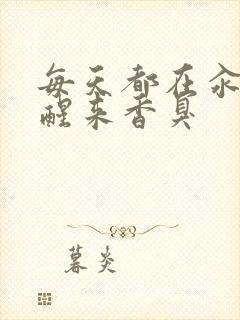 每天都在
醒来香
暮炎